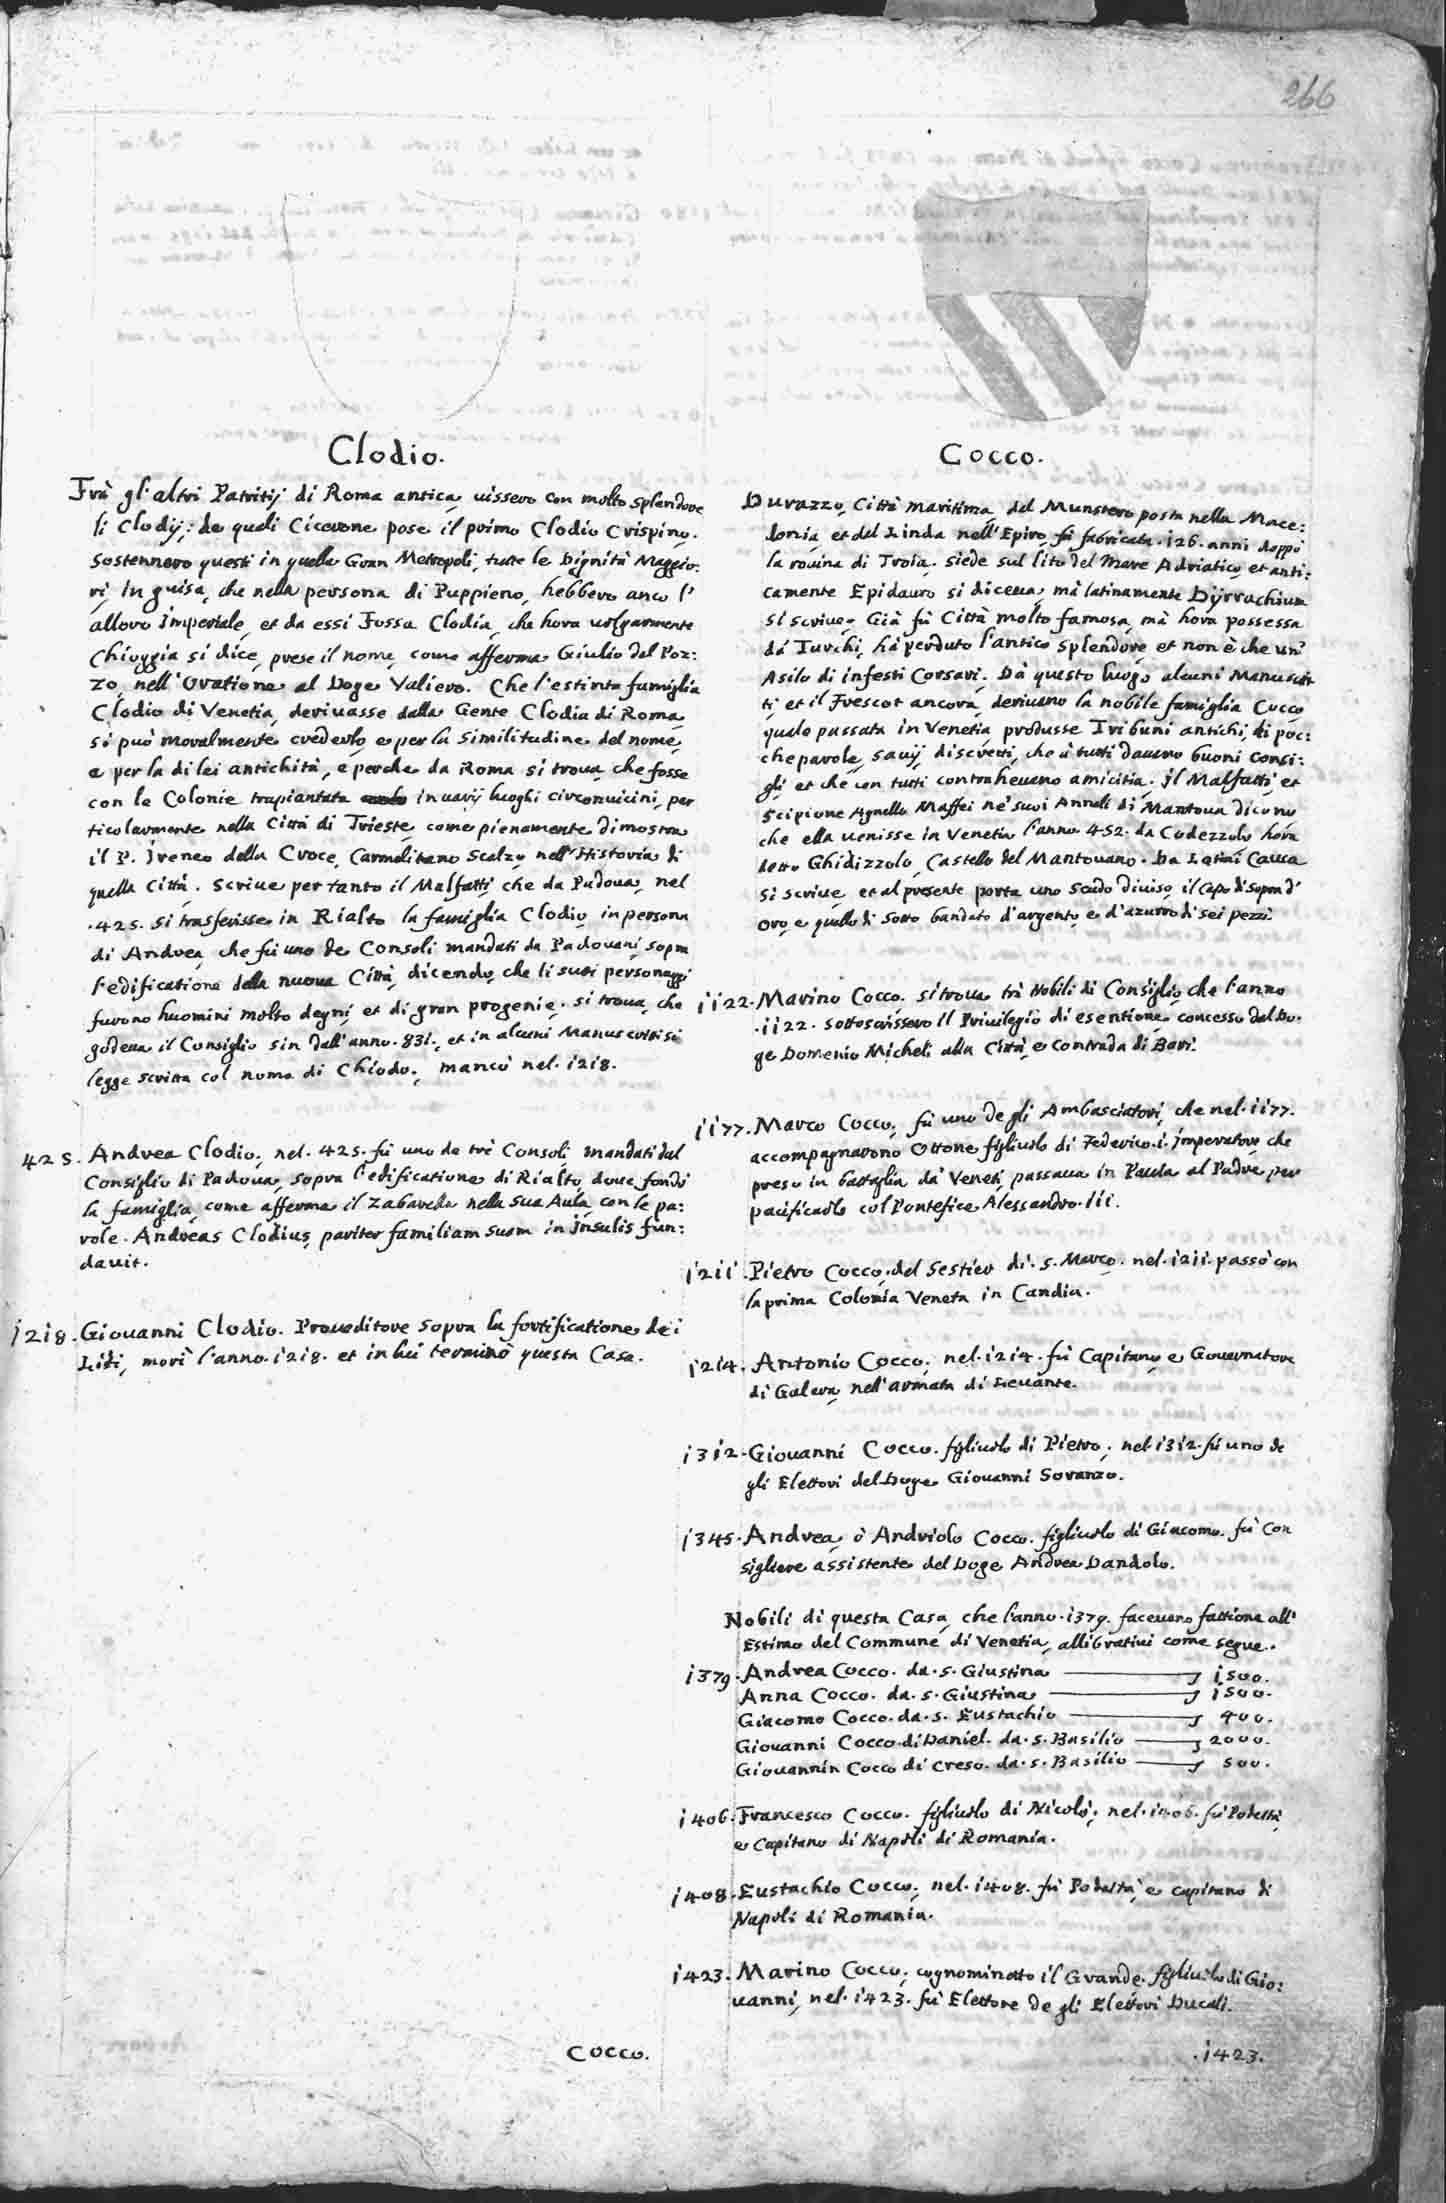 266
Clodio.
Frà gl'altri Patritij di Roma antica, uissero con molto splendore
li Clodij; de quali Cicerone pose il primo Clodio Crispino.
Sostennero questi in quella Gran Metropoli, tutte le Dignità Maggio:
ri, In guisa, che nella persona di Puppieno, hebbero anco l'
alloro Imperiale, et da essi Fossa Clodia, che hora uolgarmente
Chioggia si dice, prese il nome, come afferma Giulio dal Poz:
zo, nell'Oratione al Doge Valiero. Che l'estinta famiglia
Clodio di Venetia, deriuasse dalla Gente Clodia di Roma,
si può moralmente crederlo, e per la similitudine del nome,
e per la di lei antichità, e perche da Roma si troua, che fosse
con le Colonie trapiantata in uarij luoghi circonuicini, par
ticolarmente nella Città di Trieste, come pienamente dimostra
il P. Ireneo della Croce, Carmelitano Scalzo nell'Historia di
quella Città. Scriue per tanto il Malfatti, che da Padoua, nel
.425. si trasferisse in Rialto la famiglia Clodio, in persona
di Andrea, che fù uno de Consoli mandati da Padouani, sopra
l'edificatione della nuoua Città, dicendo, che li suoi personaggi
furono huomini molto degni, et di gran progenie. si troua, che
godeua il Consiglio sin dall'anno .831., et in alcuni Manuscritti si
legge scritta col nome di Chiodo., mancò nel .1218.
425. Andrea Clodio, nel .425. fù uno de trè Consoli mandati dal
Consiglio di Padoua, sopra l'edificatione di Rialto, doue fondò
la famiglia, come afferma il Zabarella nella sua Aula, con le pa:
role. Andreas Clodius, pariter familiam suam in Insulis fun:
dauit.
1218. Giouanni Clodio. Proueditore sopra la fortificatione dei
Lidi, morì l'anno .1218. et in lui terminò questa Casa.
Cocco.
Cocco.
Durazzo, Città maritima del Munstero posta nella Mace:
donia, et dal Linda nell'Epiro, fù fabricata .126. anni doppò
la rouina di Troia. Siede sul lito del Mare Adriatico, et anti:
camente Epidauro si diceua, mà latinamente Dyrrachium
si scriue. Già fù Città molto famosa, mà hora possessa
dà Turchi, hà perduto l'antico splendore, et non è che un'
Asilo di infesti Corsari. Dà questo luogo alcuni Manuscrit
ti, et il Frescot ancora, deriuano la nobile famiglia Cocco,
quale passata in Venetia, produsse Tribuni antichi, di poc:
che parole, sauij, discreti, che à tutti dauano buoni consi:
gli, et che con tutti contraheuano amicitia. Il Malfatti, et
Scipione Agnello Maffei ne' suoi Annali di Mantoua dicono
che ella uenisse in Venetia l'anno .452. da Codezzolo, hora
detto Ghidizzolo, Castello del Mantouano. Da Latini Cauca
si scriue, et al presente porta uno scudo diuiso, il Capo di sopra d'
oro, e quello di sotto bandato d'argento, e d'azurro di sei pezzi.
1122. Marino Cocco. si troua trà Nobili di Consiglio, che l'anno
.1122. sottoscrissero il Priuilegio di esentione, concesso dal Do.
ge Domenio Micheli alla Città, e contrada di Bari.
1177. Marco Cocco, fù uno degli Ambasciatori, che nel .1177.
accompagnarono Ottone figliuolo di Federico .i. Imperatore, che
preso in battaglia da' Veneti, passaua in Pauia al Padre per
pacificarlo col Pontefice Alessandro .iii.
1211. Pietro Cocco, del Sestier di .S. Marco. nel .1211. passò con
la prima Colonia Veneta in Candia.
1214. Antonio Cocco, nel .1214. fù Capitano, e Gouernatore
di Galera, nell'armata di Leuante.
1312. Giouanni Cocco. figliuolo di Pietro, nel 1312. fù uno de
gli Elettori del Doge Giouanni Soranzo.
1345. Andrea, ò Andriolo Cocco. figliuolo di Giacomo. fù Con
sigliere assistente del Doge Andrea Dandolo.
Nobili di questa Casa, che l'anno .1379. faceuano fattione all'
Estimo del Commune di Venetia, allibratiui come segue.
1379. Andrea Cocco. da .S. Giustina 1500.
Anna Cocco. da .S. Giustina 1500.
Giacomo Cocco. da .S. Eustachio 400.
Giouanni Cocco. di Daniel. da .S. Basilio 2000.
Giouannin Cocco di Creso. da .S. Basilio 500.
1406. Francesco Cocco. figliuolo di Nicolò, nel .1406. fù Podestà,
e Capitano di Napoli di Romania.
1408. Eustachio Cocco, nel .1408. fù Podestà, e capitano di
Napoli di Romania.
1423. Marino Cocco, cognominato il Grande. figliuolo di Gio:
uanni, nel .1423. fù Elettore de gli Elettori Ducali.
.1423.